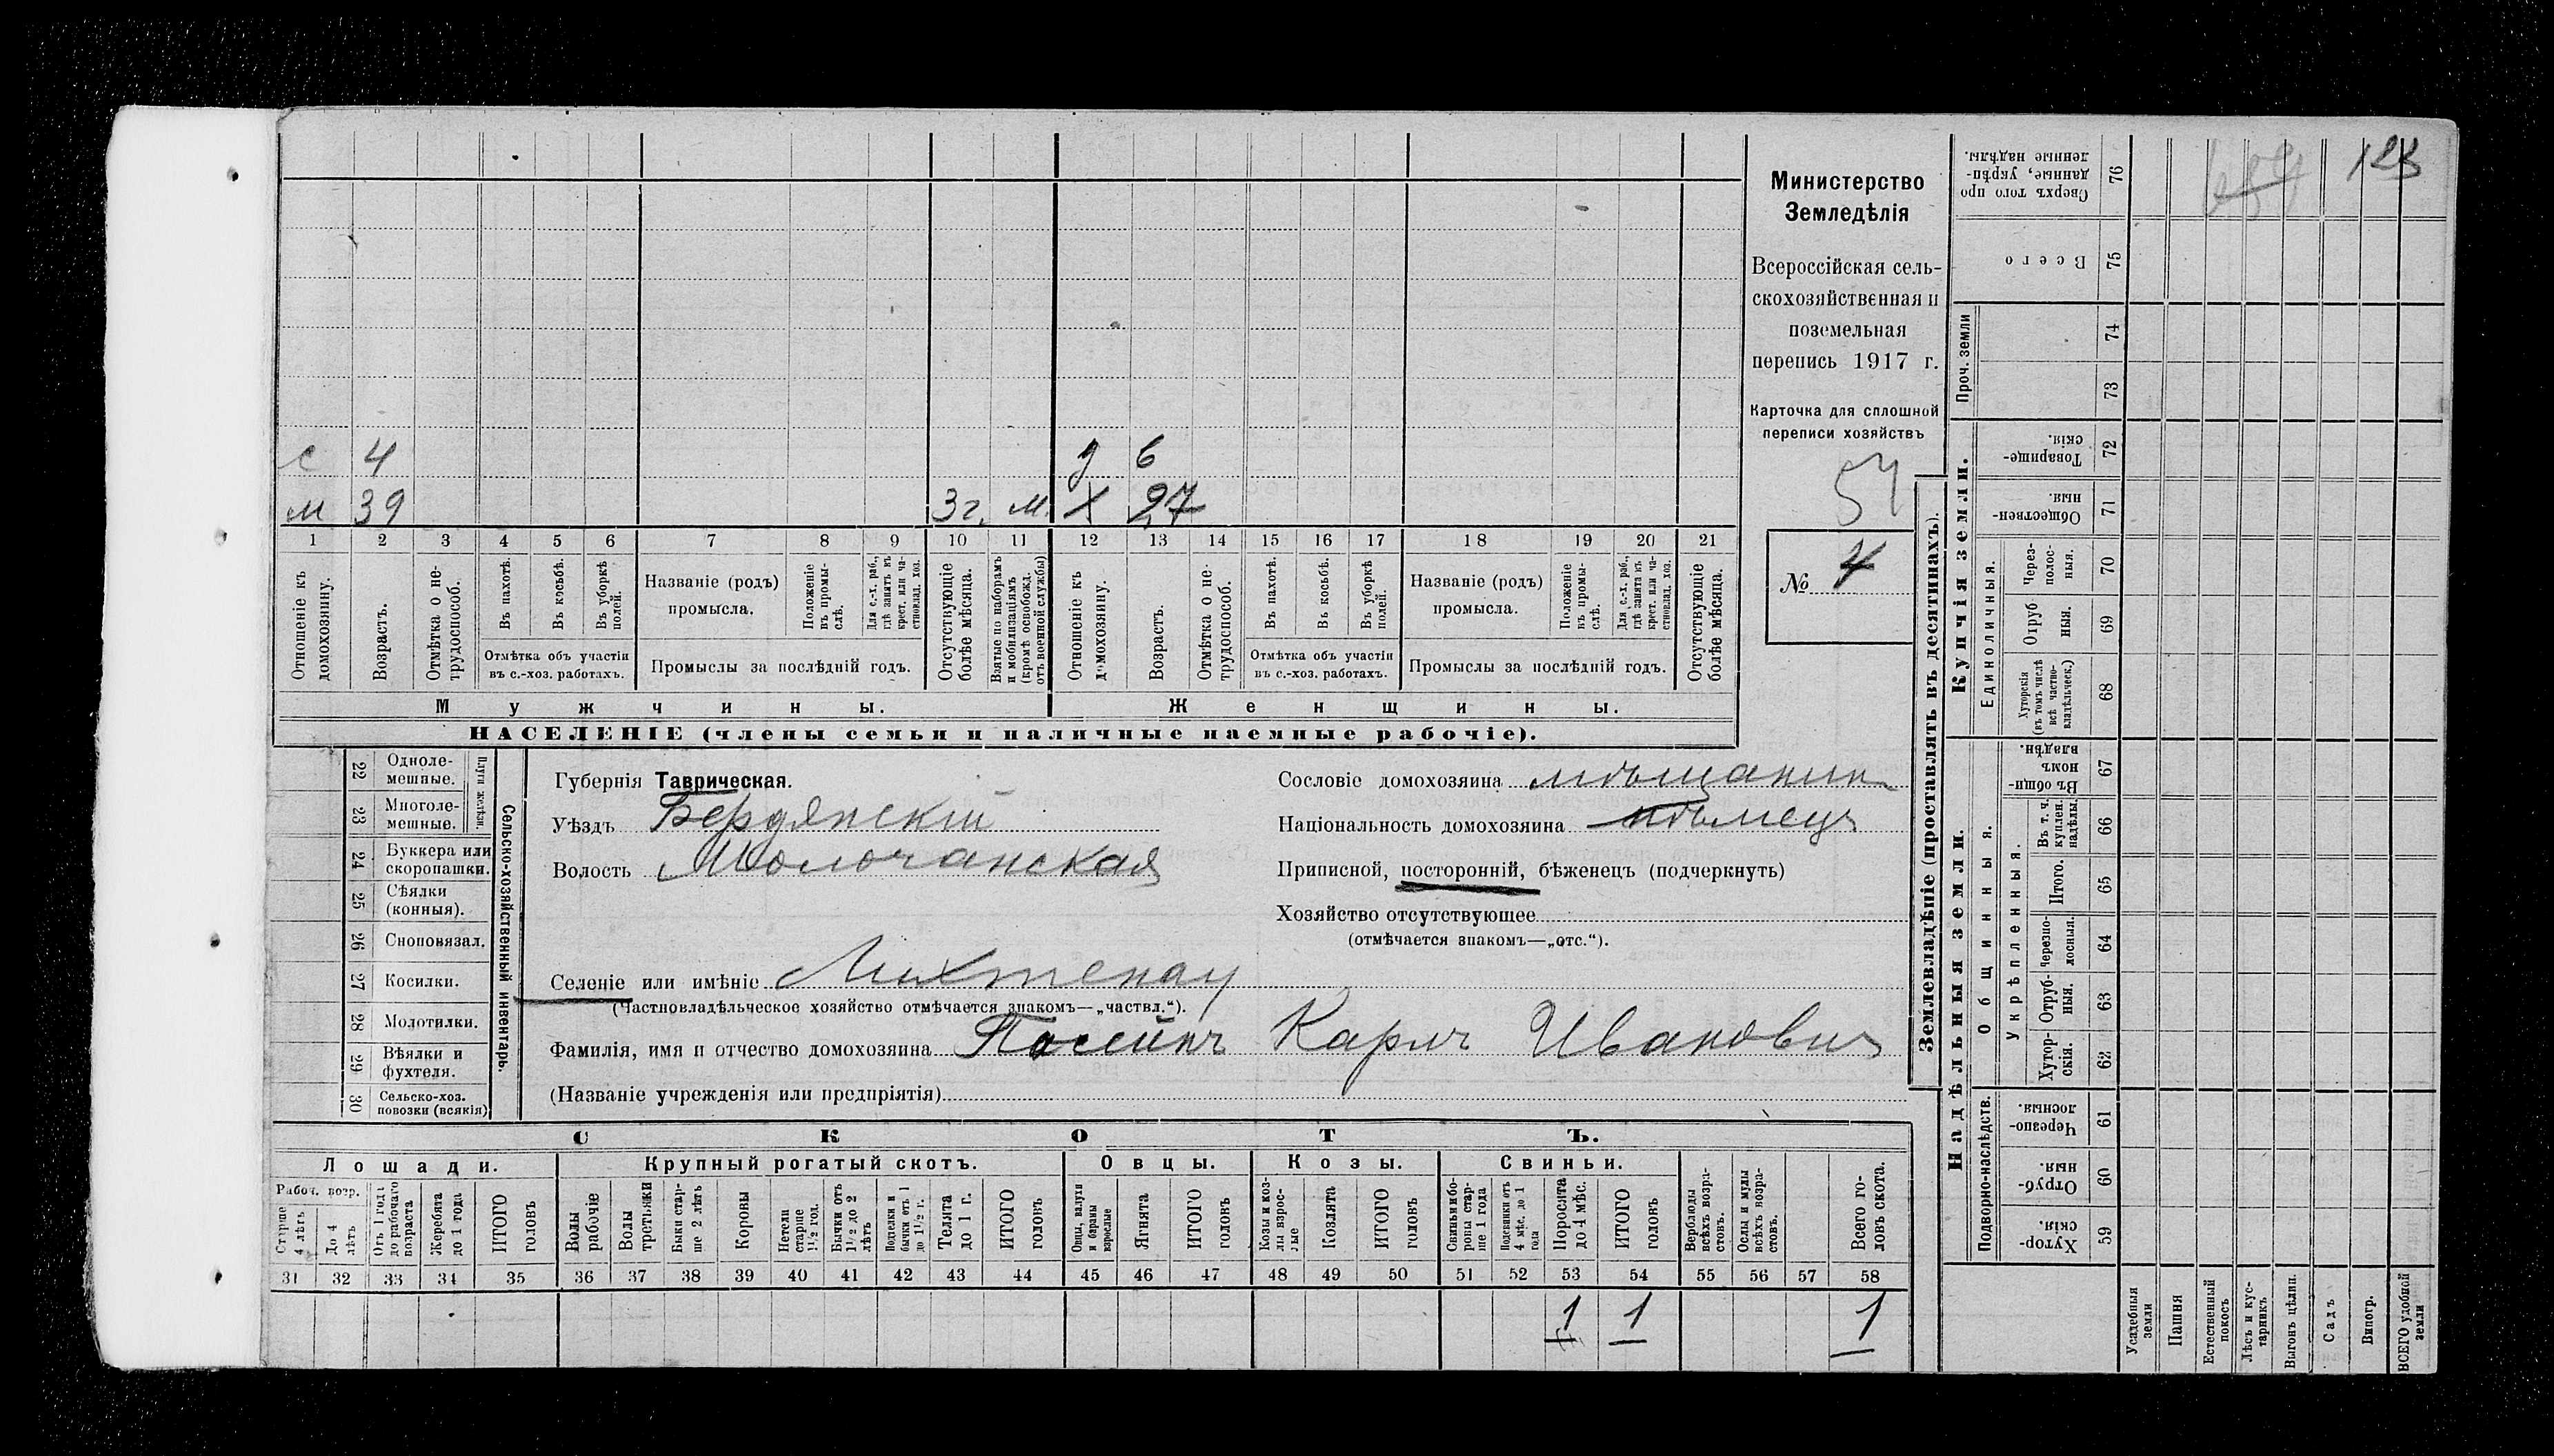 с 4 д 6
м 39 3 г. м. х 27
1 2 3 4 5 6 7 8 9 10 11 12 13 14 15 16 17 18 19 20 21
Отношеніе къ домохозяину.
Возрастъ.
Отмѣтка о не-трудоспособ.
Въ пахотѣ.
Въ косьбѣ.
Въ уборкѣ полей.
Отмѣтка объ участіи въ с.-хоз. работахъ.
Названіе (родъ) промысла.
Положеніе въ промы-слѣ.
Для с.-х. раб., гдѣ занятъ въ крест. или ча-стновлад. хоз.
Промыслы за послѣдній годъ.
Отсутствующіе болѣе мѣсяца.
Взятые по наборамъ и мобилизаціямъ (кромѣ освобожд. отъ военной службы)
Отношеніе къ домохозяину.
Возрастъ.
Отмѣтка о не-трудоспособ.
Въ пахотѣ.
Въ косьбѣ.
Въ уборкѣ полей.
Отмѣтка объ участіи въ с.-хоз. работахъ.
Названіе (родъ) промысла.
Положеніе въ промы-слѣ.
Для с.-х. раб., гдѣ занята въ крест. или ча-стновлад. хоз.
Промыслы за послѣдній годъ.
Отсутствующіе болѣе мѣсяца.
Мужчины. Женщины.
НАСЕЛЕНІЕ (члены семьи и наличные наемные рабочіе).
Министерство
Земледѣлія
Всероссійская сель-
скохозяйственная и
поземельная
перепись 1917 г.
Карточка для сплошной
переписи хозяйствъ
№ 4
22 Одноле-мешные.
23 Многоле-мешные.
Плуги желѣзн.
24 Буккера или скоропашки.
25 Сѣялки (конныя).
26 Сноповязал.
27 Косилки.
28 Молотилки.
29 Вѣялки и фухтеля.
30 Сельско-хоз. повозки (всякія)
Сельско-хозяйственный инвентарь.
Губернія Таврическая.
Уѣздъ Бердянскій
Волость Молочанская
Сословіе домохозяина мѣщанин
Національность домохозяина нѣмецъ
Приписной, посторонній, бѣженецъ (подчеркнуть)
Хозяйство отсутствующее
(отмѣчается знакомъ—„отс.“).
Селеніе или имѣніе Лихтенау
(Частновладѣльческое хозяйство отмѣчается знакомъ—„частвл.“).
Фамилія, имя и отчество домохозяина Карлъ Иванович
(Названіе учрежденія или предпріятія)
СКОТЪ.
Лошади. Крупный рогатый скотъ. Овцы. Козы. Свиньи.
Рабоч. возр.
Старше 4 лѣтъ
До 4 лѣтъ
Отъ 1 года до рабочаго возраста
Жеребята до 1 года
ИТОГО головъ
Волы рабочіе
Волы третьяки
Быки стар-ше 2 лѣтъ
Коровы
Нетели старше 1½ год.
Бычки отъ 1½ до 2 лѣтъ
Подтелки и бычки отъ 1 до 1½ г.
Телята до 1 г.
ИТОГО головъ
Овцы, валухи и бараны взрослые
Ягнята
ИТОГО головъ
Козы и коз-лы взрос-лые
Козлята
ИТОГО головъ
Свиньи и бо-ровы стар-ше 1 года
Подсвинки отъ 4 мѣс. до 1 года
Поросята до 4 мѣс.
ИТОГО головъ
Верблюды всѣхъ возра-стовъ.
Ослы и мулы всѣхъ возра-стовъ.
Всего го-ловъ скота.
31 32 33 34 35 36 37 38 39 40 41 42 43 44 45 46 47 48 49 50 51 52 53 54 55 56 57 58
1 1 1
Землевладѣніе (проставлять въ десятинахъ).
Надѣльныя земли. Купчія земли. Проч. земли
Подворно-наслѣдств.
Общинныя.
Укрѣпленныя.
Единоличныя.
Хутор-скія. 59
Отруб-ныя. 60
Черезпо-лосныя. 61
Хутор-скія. 62
Отруб-ныя. 63
Черезпо-лосныя. 64
Итого. 65
Въ т. ч. куплен. надѣлы. 66
Въ общи-номъ владѣн. 67
Хуторскія (въ томъ числѣ всѣ частно-владѣльческ.) 68
Отруб-ныя. 69
Через-полос-ныя. 70
Обществен-ныя. 71
Товарище-скія. 72
73
74
Всего 75
Сверхъ того про данные, укрѣп-ленные надѣлы. 76
Усадебныя земли
Пашня
Естественный покосъ
Лѣсъ и кус-тарникъ
Выгонъ цѣлин.
Садъ
Виногр.
ВСЕГО удобной земли